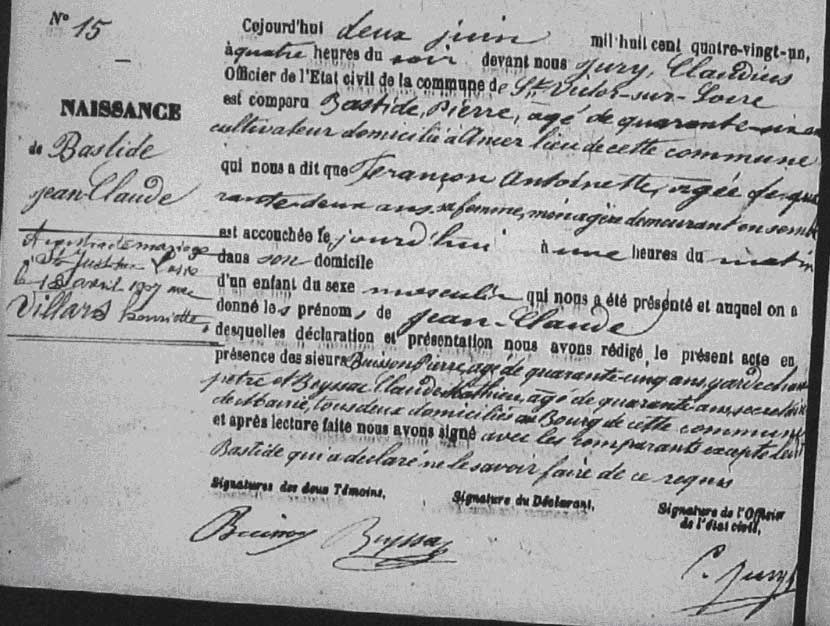 N° 15
NAISSANCE
de Bastide
Jean-Claude
mariage
à St Just sur Loire
le 13 avril 1907 avec
Villars henriette
Cejourd'hui deux juin mil huit cent quatre-vingt-un,
à quatre heures du soir devant nous Jury, Claudius
Officier de l'Etat civil de la commune de St Victor-sur-Loire
est comparu Bastide, Pierre, âgé de quarante-six ans
cultivateur domicilié à lieu de cette commune
qui nous a dit que Françon Antoinette, âgée de qua
rante-deux ans sa femme, ménagère demeurant ensemble
est accouchée le jourd'hui à une heures du matin
dans son domicile
d'un enfant du sexe masculin qui nous a été présenté et auquel on a
donné les prénoms de Jean-Claude
desquelles déclaration et présentation nous avons rédigé, le présent acte en
présence des sieurs Buisson Pierre, âgé de quarante-cinq ans, garde cham
pêtre et Beyssac Claude Mathieu, âgé de quarante ans, secrétaire
de Mairie, tous deux domiciliés au Bourg de cette commune
et après lecture faite nous avons signé avec les comparants excepté led
Bastide qui a déclaré ne le savoir faire de ce requis
Signatures des deux Témoins,
Signature du Déclarant,
Signature de l'Officier
de l'état civil,
Buisson
Beyssac
C. Jury